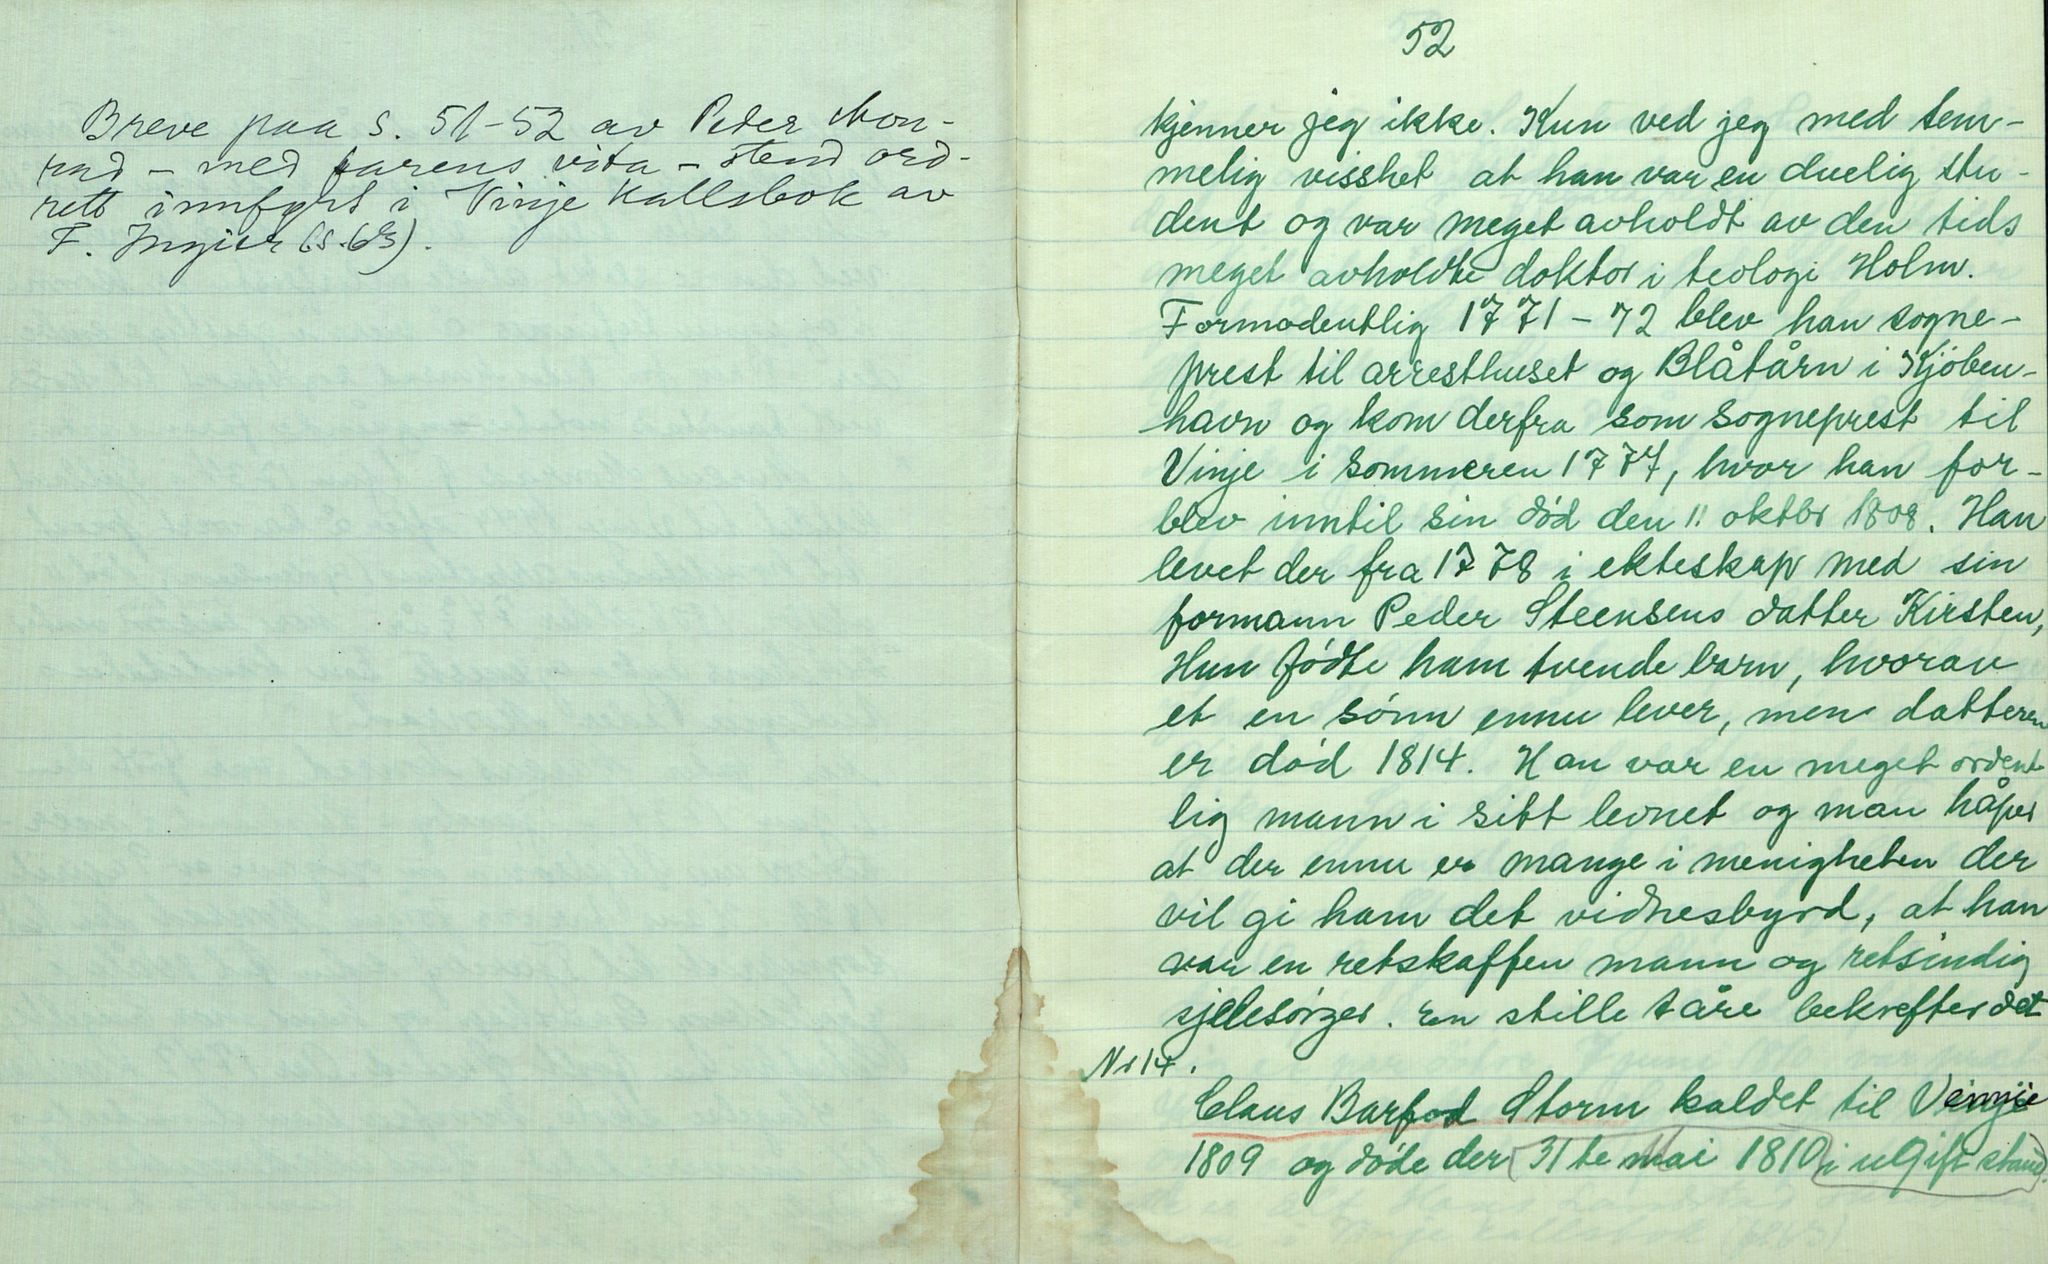 Breve paa s. 51-52 av Peder Mon-
rad - med farens vita - stend ord-
rett innført i Vinje Kallsbok av
F. Ingier (s. 63).
52
kjenner jeg ikke. Kun ved jeg med tem-
melig visshet at han var en duelig stu-
dent og var meget avholdt av den tids
meget avholdte doktor i teologi Holm.
Formodentlig 1771-72 blev han sogne-
prest til arresthuset og Blåtårn i Kjöben-
havn og kom derfra som sogneprest til
Vinje i sommeren 1777, hvor han for-
blev inntil sin död den 11 oktbr 1808. Han
levet der fra 1778 i ekteskap med sin
formann Peder Steensens datter Kirsten,
Hun födte ham tvende barn, hvorav
et en sönn ennu lever, men datteren
er död 1814. Han var en meget ordent
lig mann i sitt levnet og man håper
at der ennu er mange i menigheten der
vil gi ham det vidnesbyrd, at han
var en retskaffen mann og retsindig
sjelesörger. En stille tåre bekrefter det
Nr 14.
Claus Barfod Storm kaldet til
1809 og döde den 31te mai 1810 i ugift stand.